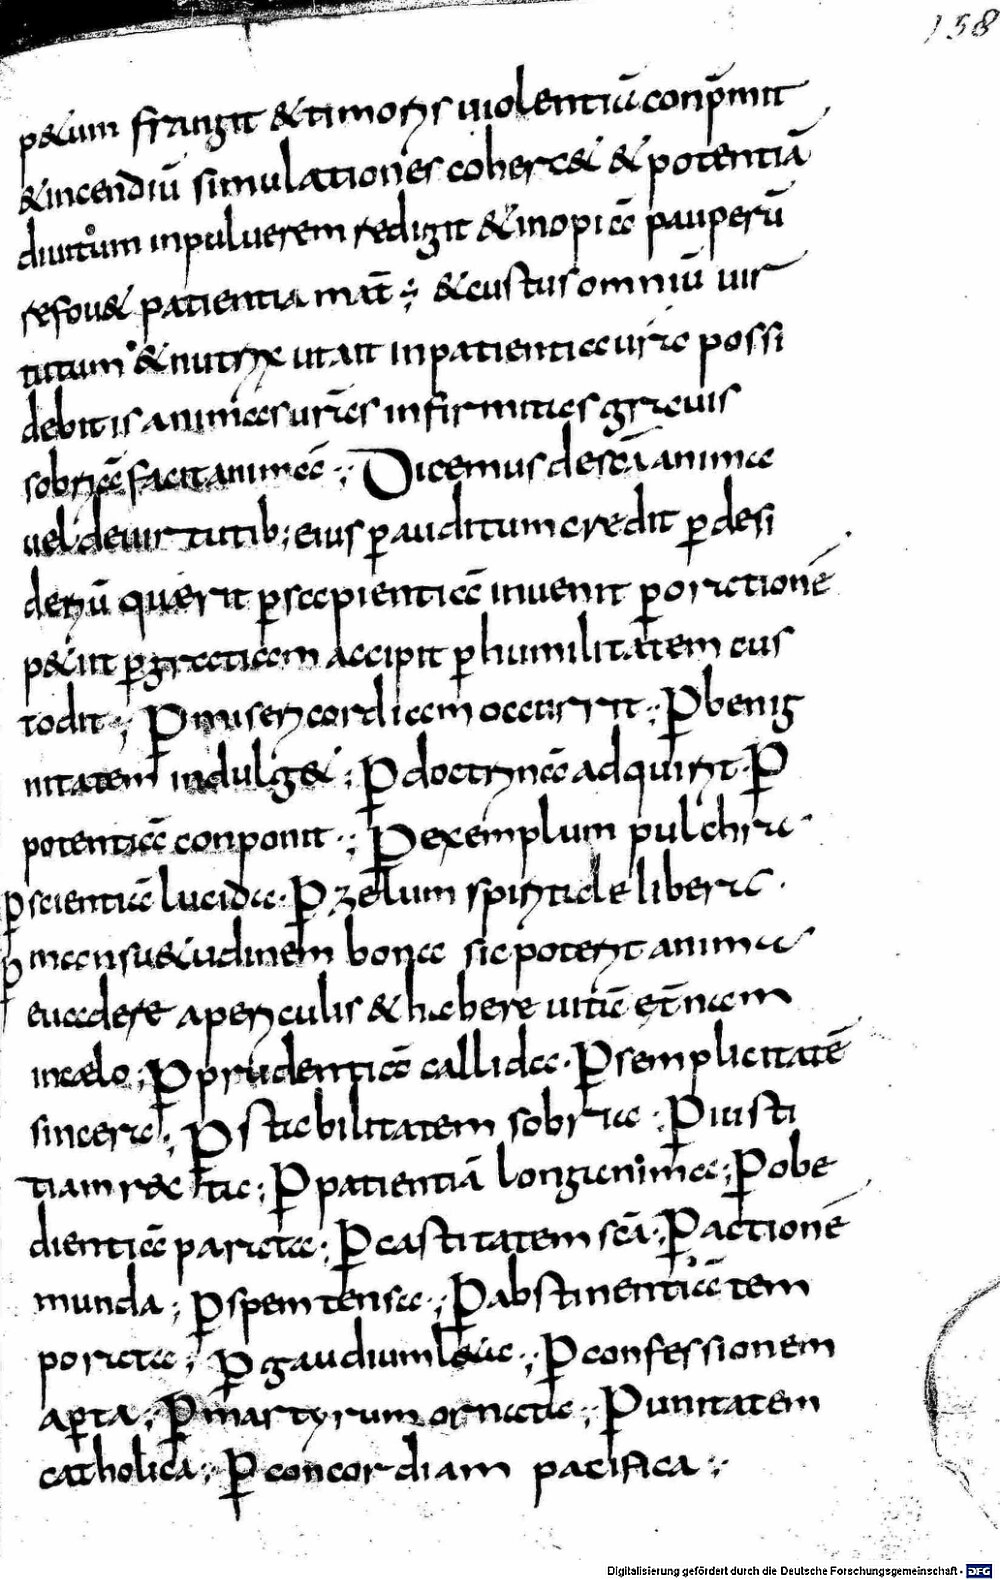 158
p&um frangit & timoris uiolentiā conp̄mit
& incendiū simulationes coherc& & potentiā
diuitum inpuluerem redigit & inopiā pauperū
refou& patientia mat̄ ; & custus omniū uir
tutum & nutrix ut ait inpatientia ur̄a possi
debitis animas ur̄as infirmitas grauis
sobriā facit animā ; Dicemus de sc̄a anima
uel de uirtutib; eius ꝑ auditum credit ꝑ desi
deriū querit ꝑ sapientiā inuenit ꝑ orationē
p&iit ꝑ gratiam accipit ꝑ humilitatem cus
todit ; Ꝑ misericordiam occurrit ; Ꝑ benig
nitatem indulg& ; Ꝑ doctrinā adquirit Ꝑ
potentiā conponit ; Ꝑ exemplum pulchra
ꝑ scientiā lucida · Ꝑ zelum spiritale libera ·
ꝑ mansu&udinem bona sic poterit anima
euadere a periculis & habere uitā et̄nam
in cælo ; Ꝑ prudentiā callida · Ꝑ semplicitatē
sincera ; Ꝑ stabilitatem sobria ; Ꝑ iusti
tiam recta ; Ꝑ patientiā longanima ; Ꝑ obe
dientiā parata ; Ꝑ castitatem sc̄a ; Ꝑ actionē
munda ; Ꝑ spem tensa ; Ꝑ abstinentiā tem
porata ; Ꝑ gaudium ; Ꝑ confessionem
aꝑta ; Ꝑ martyrum ornata ; Ꝑ unitatem
catholica ; Ꝑ concordiam pacifica ;
Digitalisierung gefördert durch die Deutsche Forschungsgemeinschaft - DFG